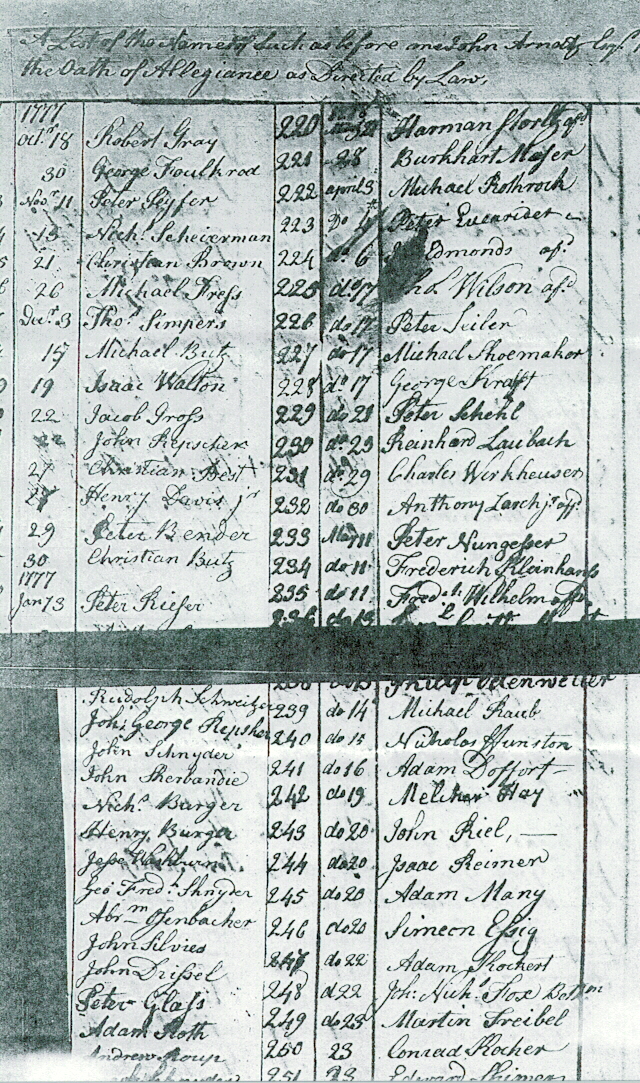 A List of the Names of Such as before me John Arndt, Esqr
the Oath of Allegiance as Directed by Law,
1777
Octr 18 Robert Gray 220 Harman
30 George Foulkrod 221 28 Burkhart Moser
Novr 11 Peter Seyfer 222 april 3 Michael Rothrock
Nichs Scheierman 223 Do Peter
21 Christian Brown 224 do 6 Edmonds
26 Michael Fress 225 do 17 Wilson
Decr 3 Thos Simpers 226 do 17 Peter Seiler
15 Michael Butz 227 do 17 Michael Shoemaker
19 Isaac Walton 228 do 17 George Krafft
22 Jacob Gross 229 do 21 Peter Schehl
22 John Repscher 230 do 23 Reinhard Laubach
27 Christian Best 231 do 29 Charles Werkheuser
27 Henry Davis jr 232 do 30 Anthony Larch jr
29 Peter Bender 233 May 11 Peter Nungesser
30 Christian Butz 234 do 11 Frederich Kleinhans
1777
Jan 13 Peter Kiefer 235 do 11 Fredch Wilhelm
236 do 13
Rudolph Schweitzer 239 do 14 Michael Raub
Joh: George Repsher 240 do 15 Nicholas
John Schnyder 241 do 16 Adam Doffort
John Sherbandie 242 do 19 Melcher Hay
Nichs Burger 243 do 20 John Riel,
Henry Burger 244 do 20 Isaac Reimer
Jesse Washburn 245 do 20 Adam Many
Geo Fredk Shnyder 246 do 20 Simeon Essig
Abrm Osenbacher 247 do 22 Adam Hockert
John Silvies 248 d 22 Joh: Nichs
John Drissel 249 do 23 Martin Freibel
Peter Glass 250 23 Conrad Rocher
Adam Roth 251 23 Edward Shimar
Andrew Roup